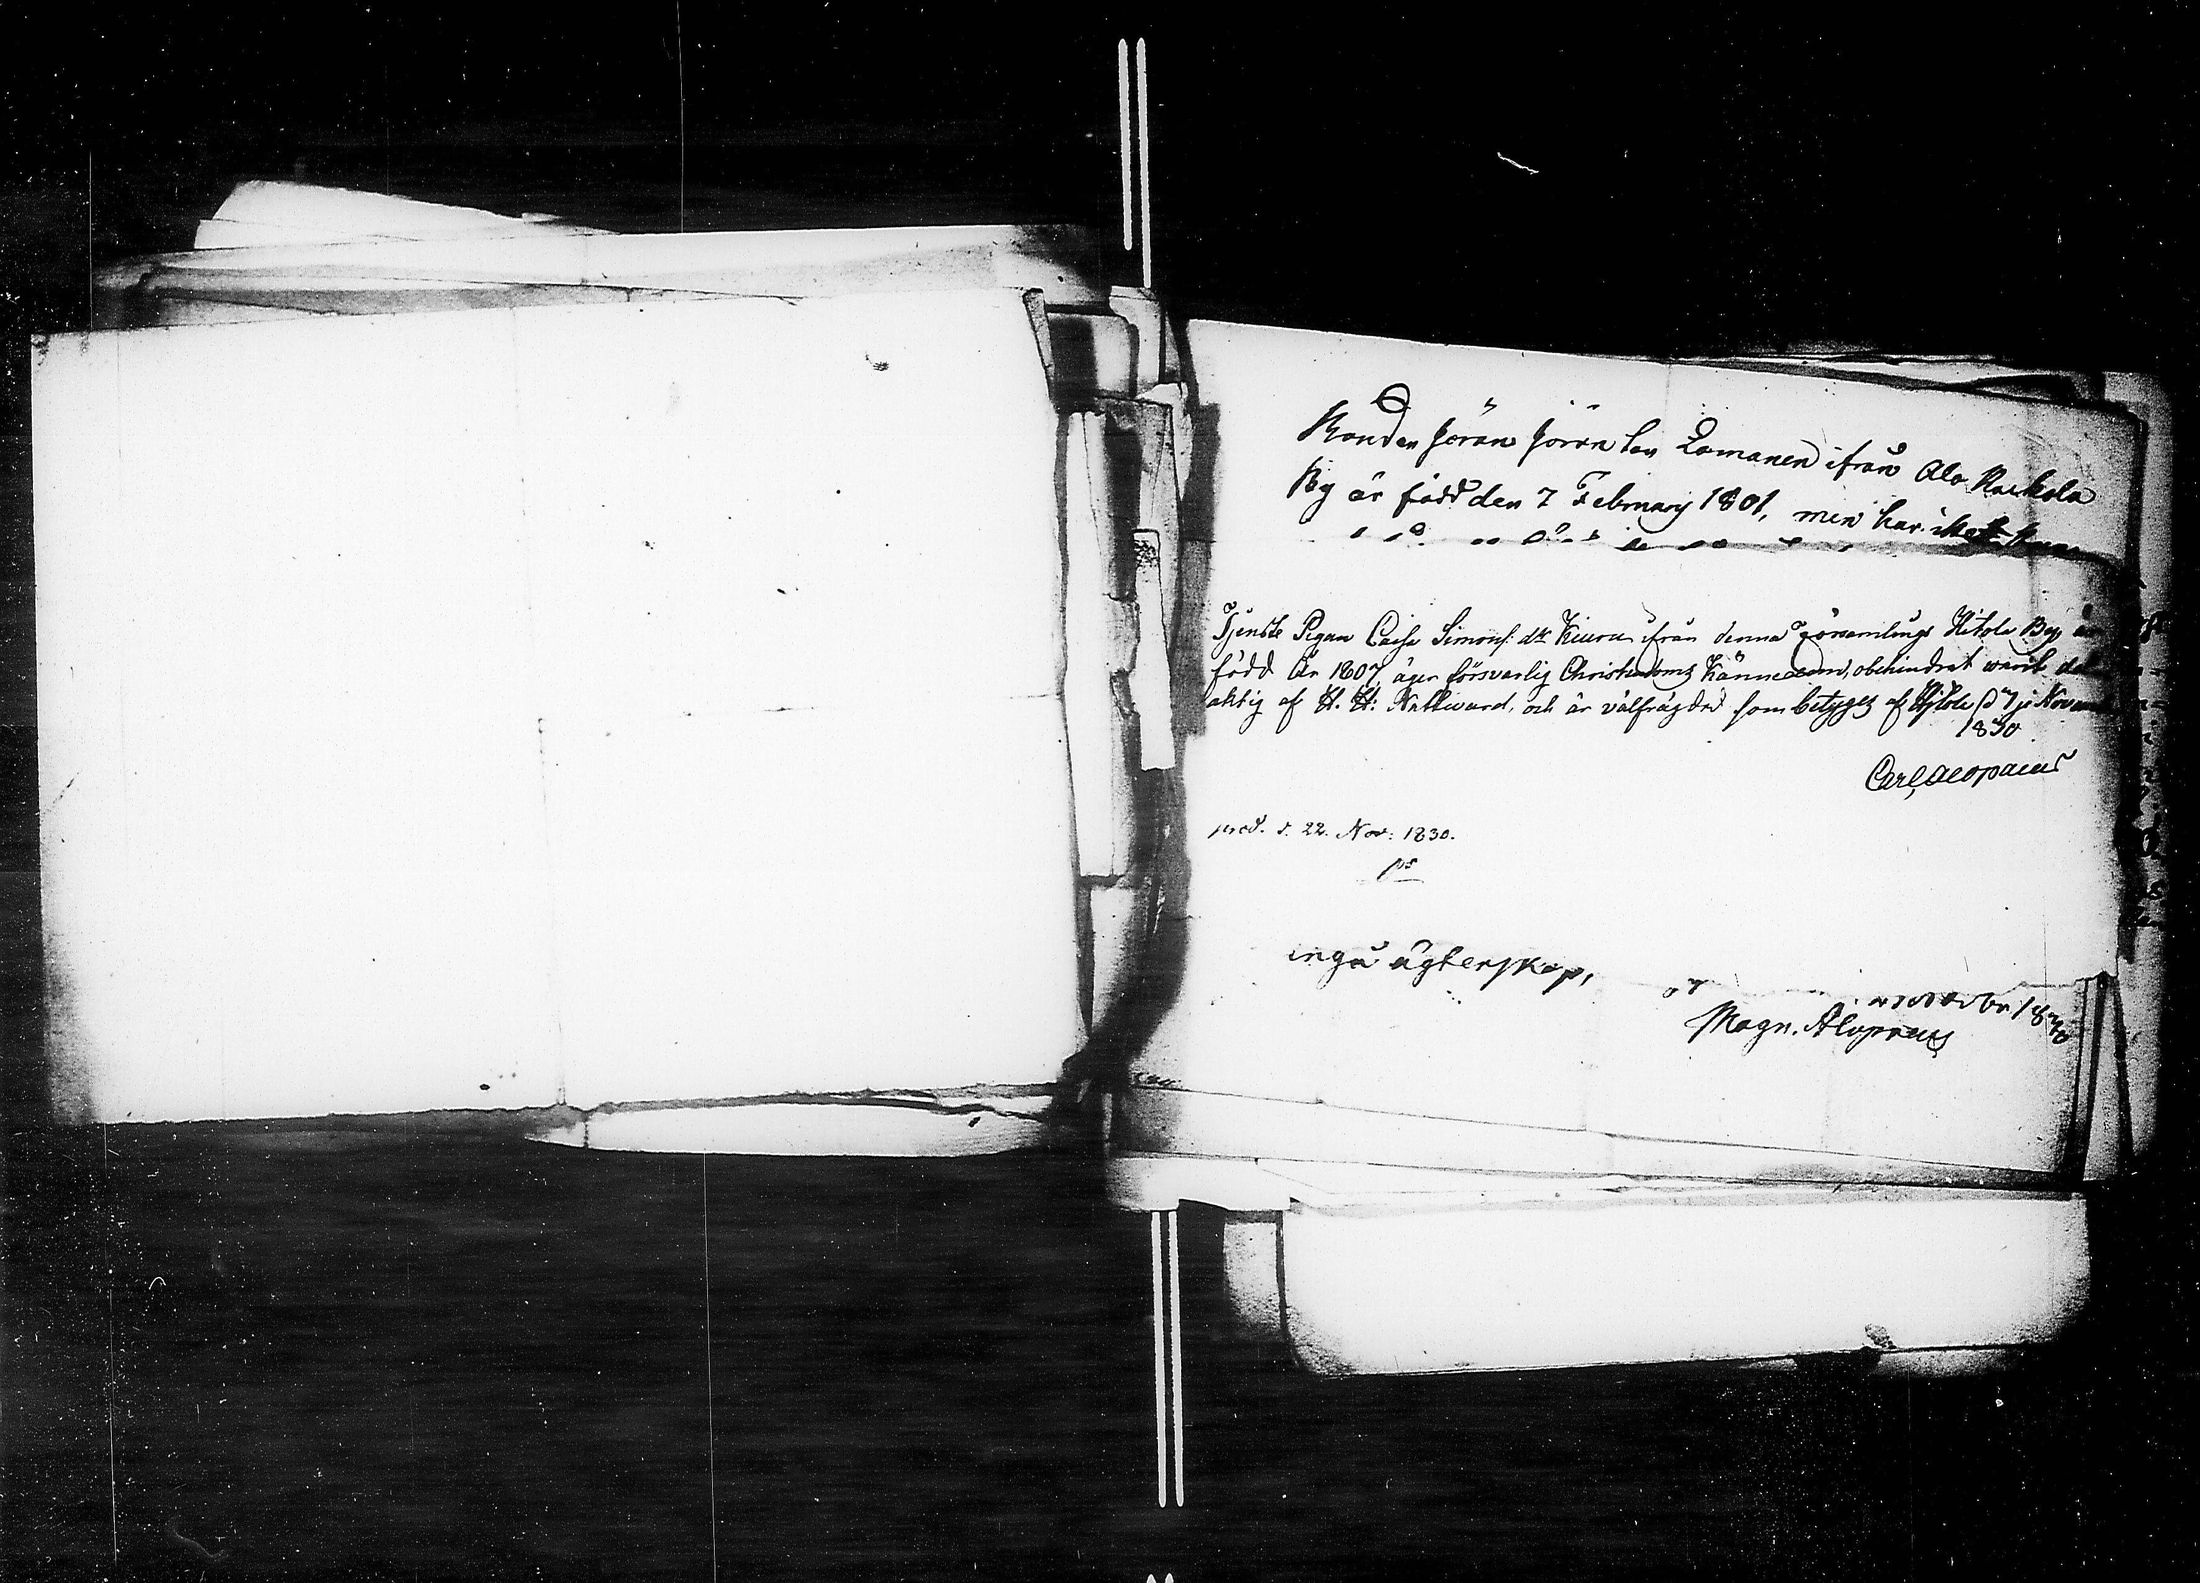 Bonden Jöran Jöransson Lomanen ifrån Ala Kuckola
By är född den 7 February 1801, men har
Tjenste Pigan Caisa Simons dr Kiuru ifrån denna Församlings Hitola By är
född År 1807, äger försvarlig Christendoms Kännedom, obehindrat warit del
aktig af H. H: Nattward, och är välfrägdad som betyges af Hitola d 7 Novem
1830
Carl Alopaeus
prod. d. 22. Nov: 1830.
ps
ingå ägtenskap,
November 1830
Magn. Alopaeus